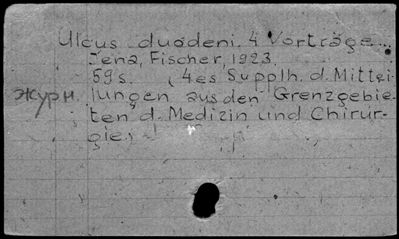 Ulcus duodeni. 4 Vorträge...
Jena, Fischer, 1923.
59 s. (4es Supplh. d. Mittei-
журн. lungen aus den Grenzgebie-
ten d. Medizin und Chirur-
gie)